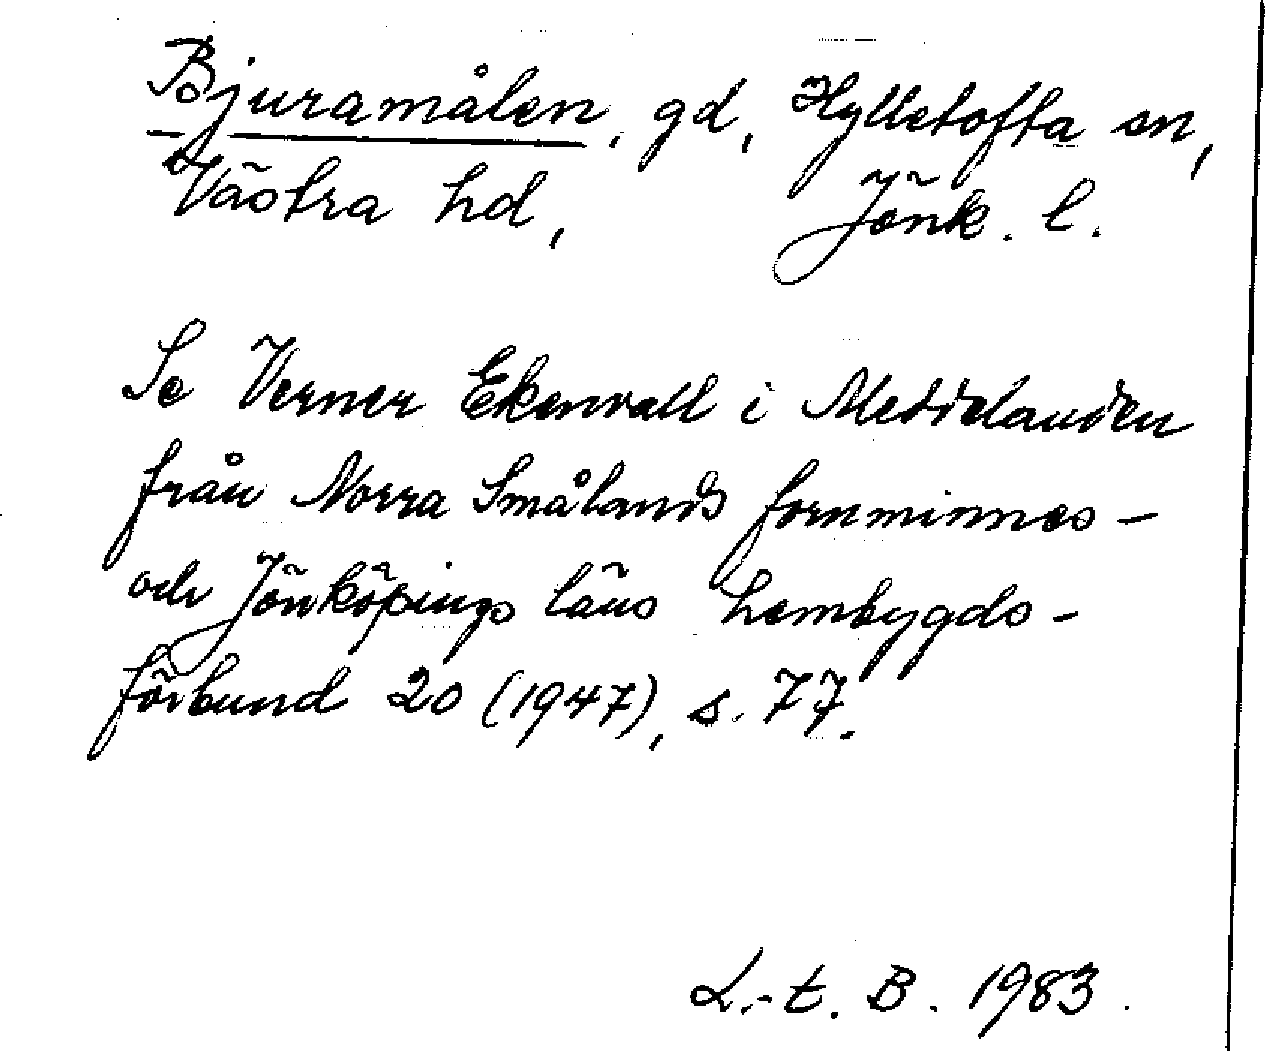 Bjuramålen, gd, Hylletofta sn,
Västra hd, Jönk. l.
Se Verner Ekenvall i Meddelanden
från Norra Smålands fornminnes-
och Jönköpings läns hembygds-
förbund 20 (1947), s. 77.
L.-t. B. 1983.